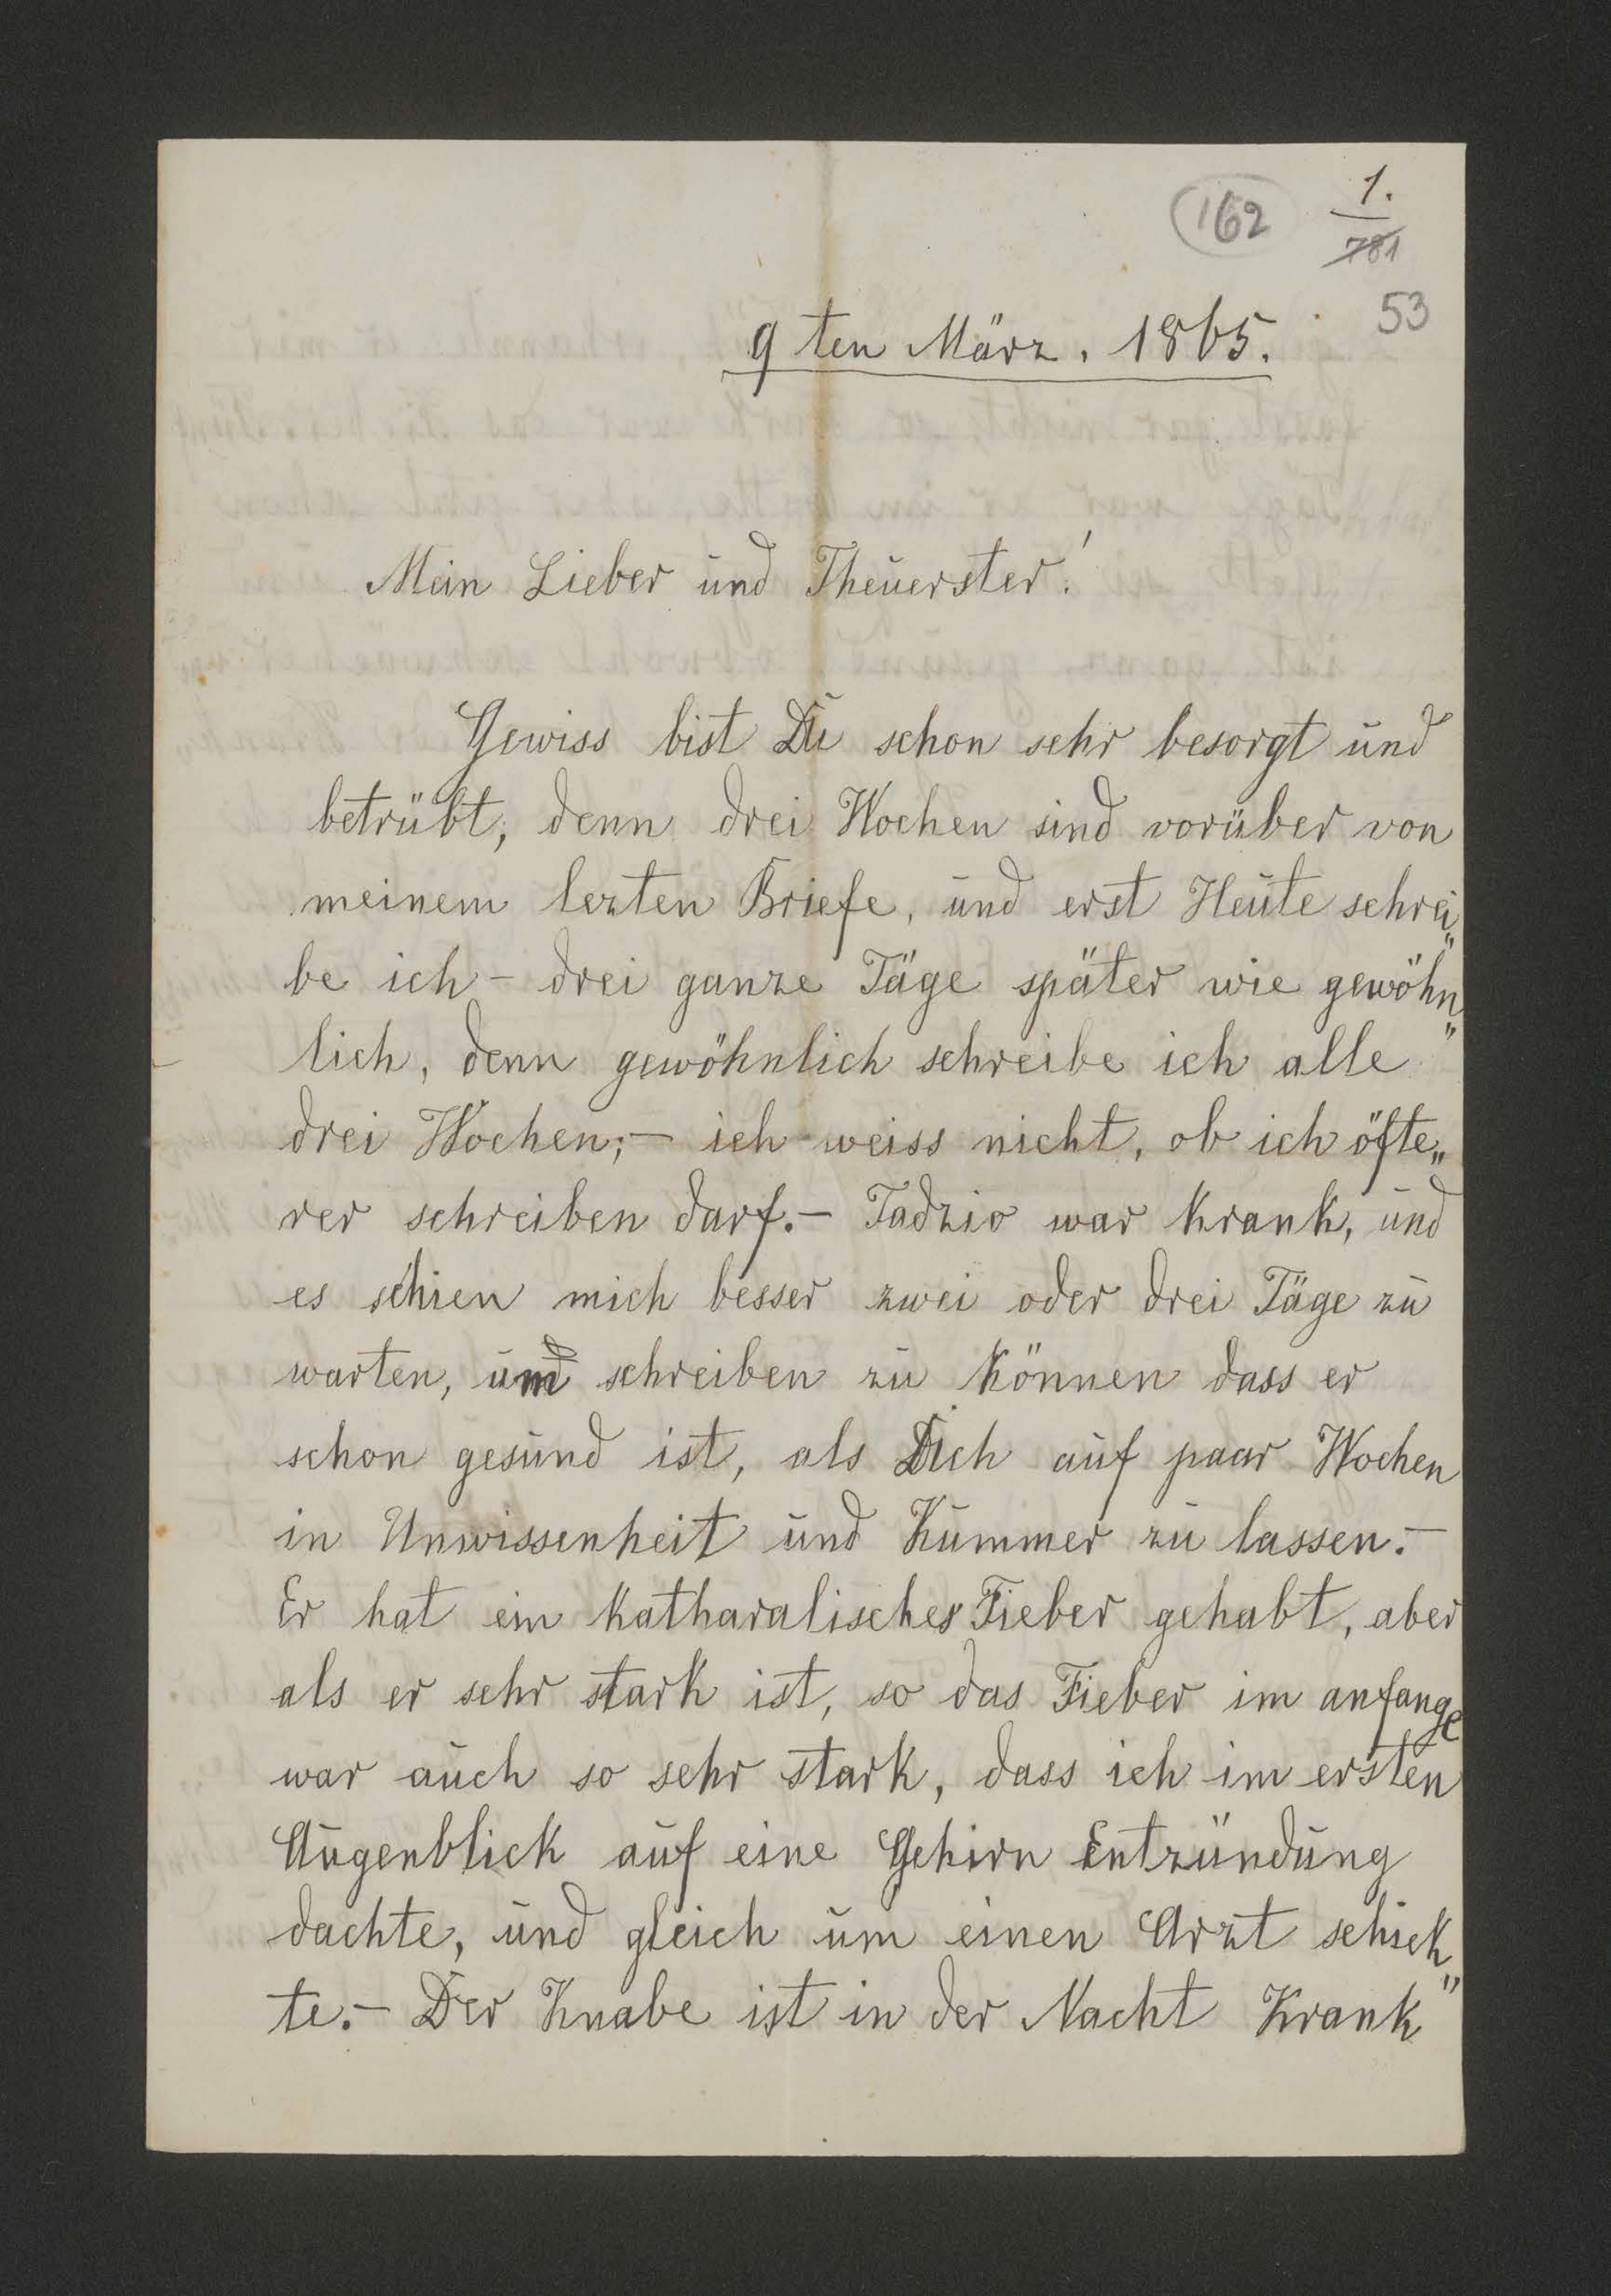 162
1.
781
53
9ten März. 1865.
Mein Lieber und Theuerster!
Gewiss bist Du schon sehr besorgt und
betrübt, denn drei Wochen sind vorüber von
meinem lezten Briefe, und erst Heute schrei„
be ich – drei ganze Täge später wie gewöhn„
lich, denn gewöhnlich schreibe ich alle
drei Wochen; – ich weiss nicht, ob ich öfte„
rer schreiben darf. – Tadzio war krank, und
es schien mich besser zwei oder drei Täge zu
warten, und schreiben zu können dass er
schon gesund ist, als Dich auf paar Wochen
in Unwissenheit und Kummer zu lassen. –
Er hat ein katharalisches Fieber gehabt, aber
als er sehr stark ist, so das Fieber im anfange
war auch so sehr stark, dass ich im ersten
Augenblick auf eine Gehirn Entzündung
dachte, und gleich um einen Arzt schick„
te. – Der Knabe ist in der Nacht Krank